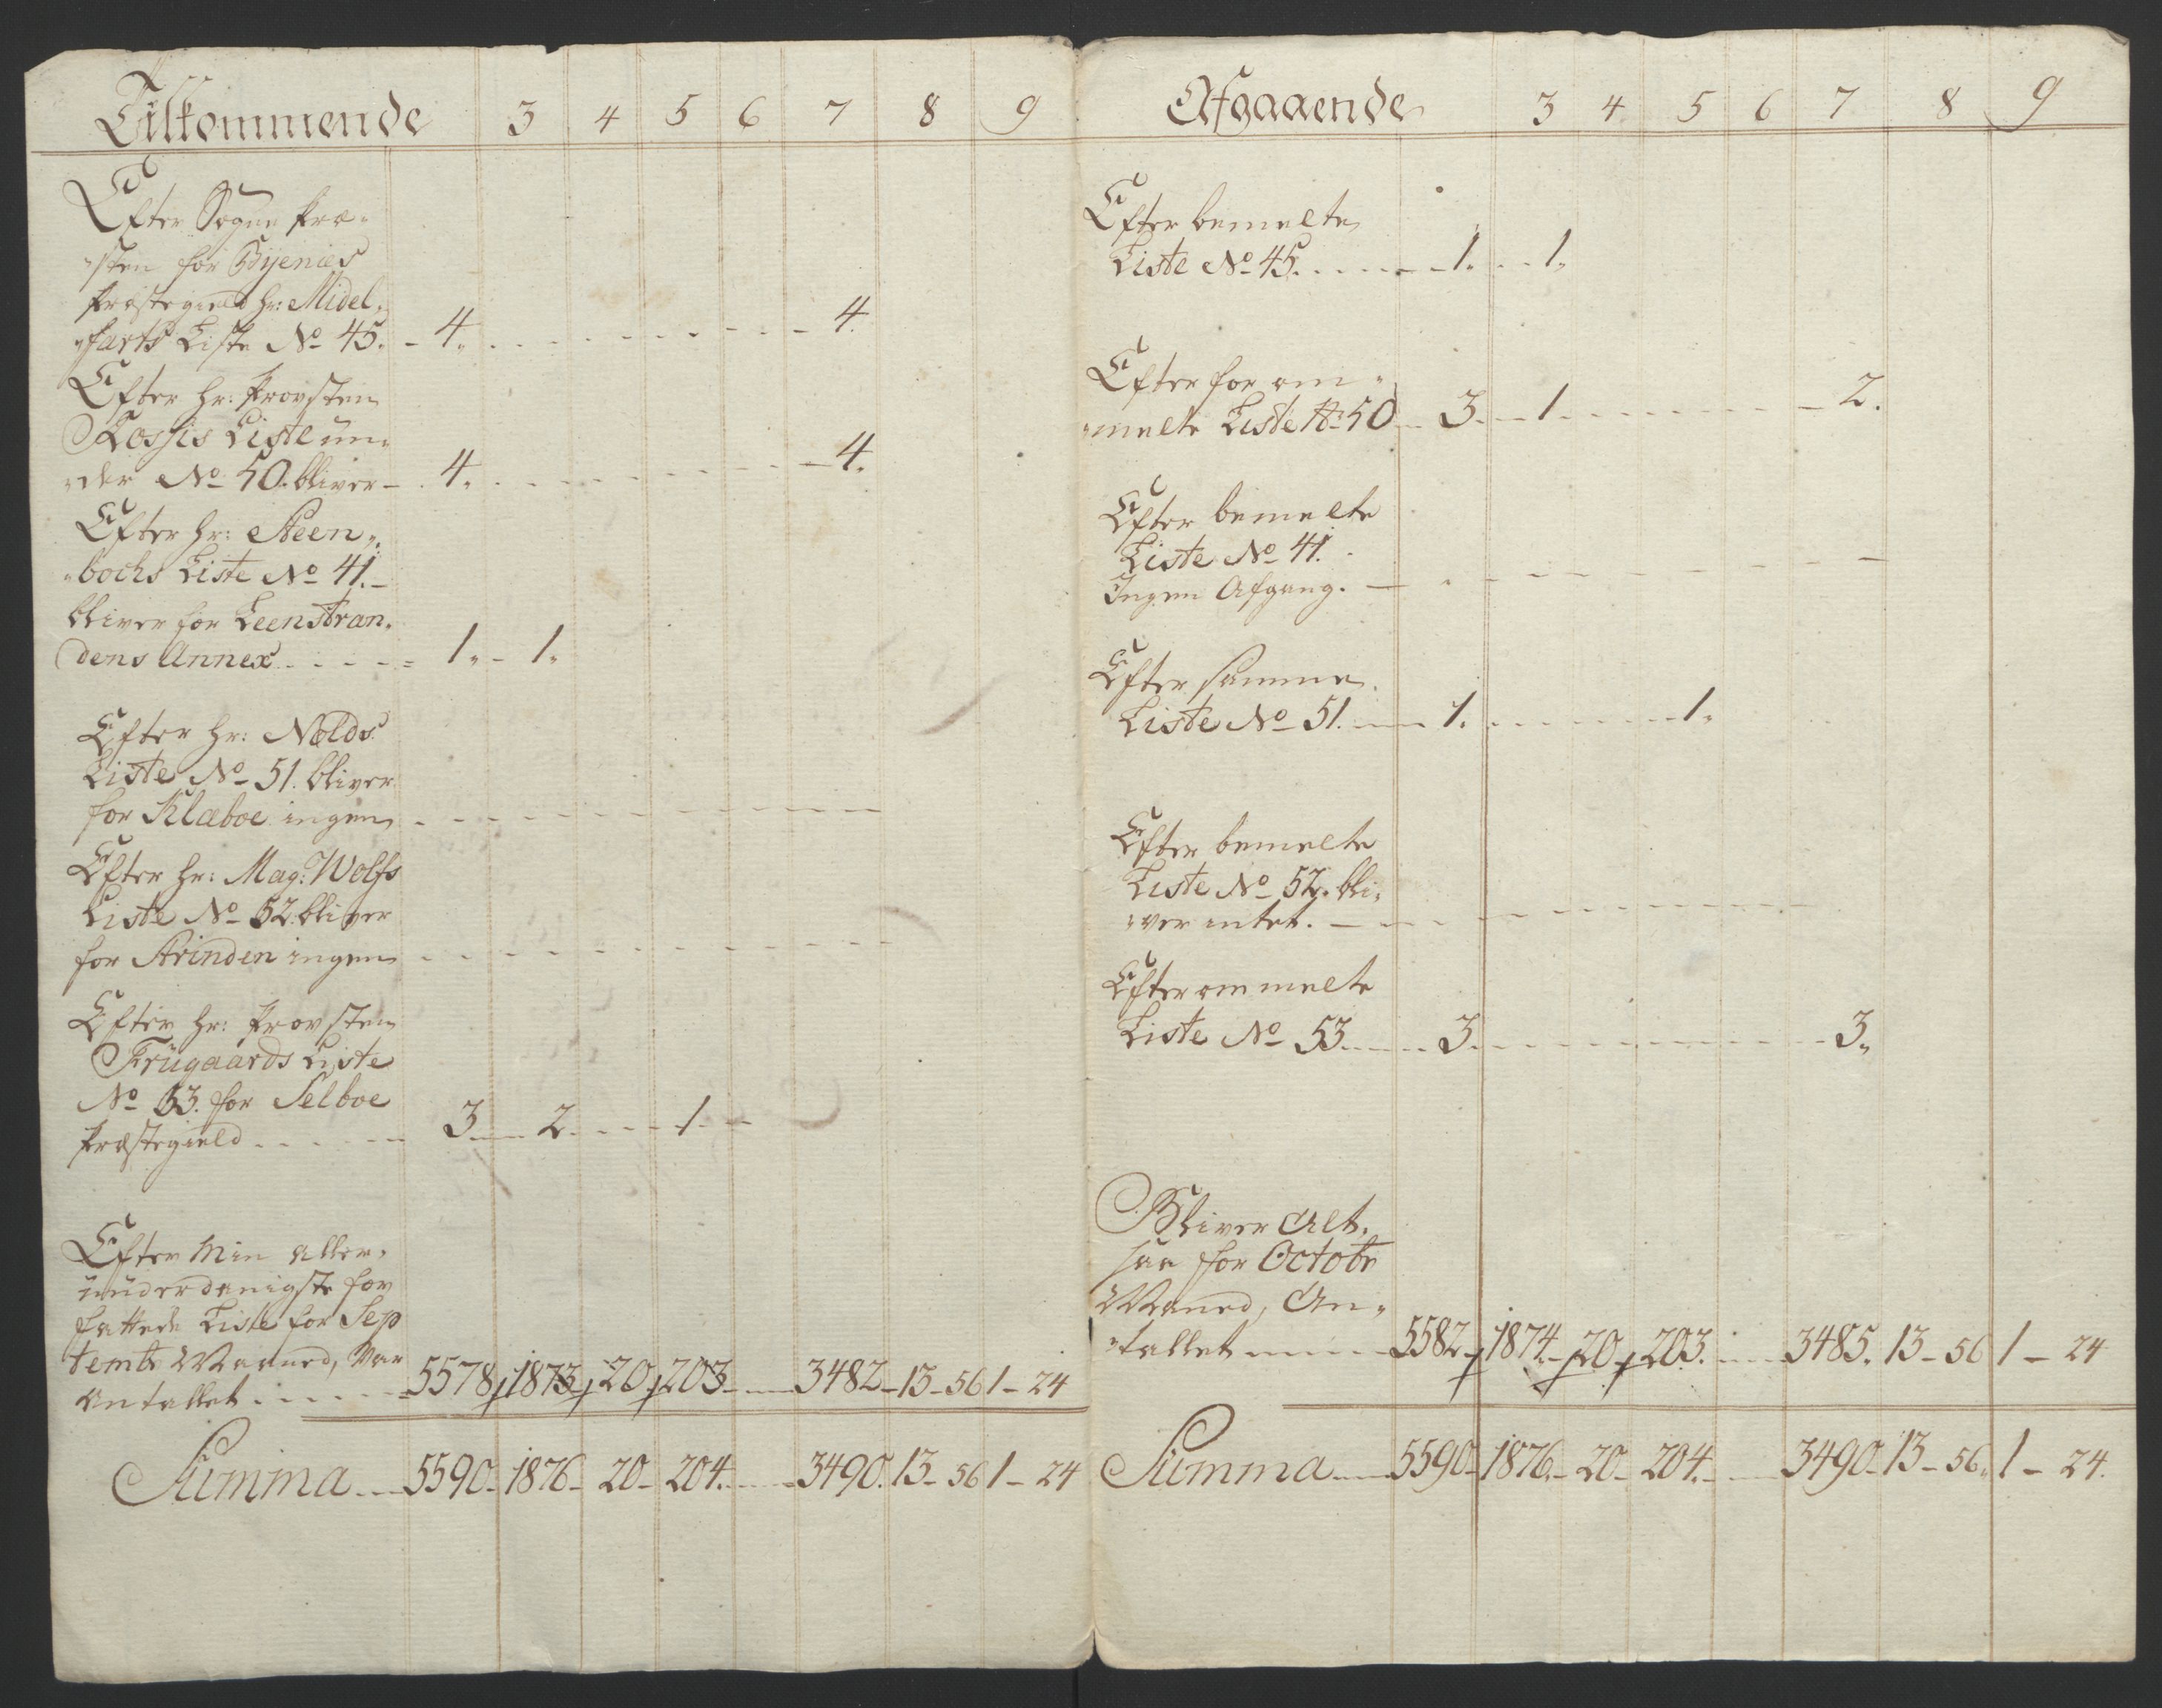 Tilkommende 3 4 5 6 7 8 9
Efter Sogne Præ-
sten for Byenies
Præstegield Hr: Midel-
farts Liste No 45. - 4. - - - - - - - 4.
Efter Hr: Provsten
Rossis Liste un-
der No 50. bliver - 4. - - - - - - - 4.
Efter Hr: Steen-
bochs Liste No 41. -
bliver for Leenstran-
dens Annex - - - - 1. - 1.
Efter Hr: Nolds
Liste No 51. bliver
for Klæboe ingen - - - - - - - -
Efter Hr: Mag: Wolfs
Liste No 52. bliver
for Strinden ingen - - - - - - - -
Efter Hr: Provsten
Krügaards Liste
No 53. for Selboe
Præstegield - - - - 3 - 2 - - - 1 - -
Efter Min aller-
underdanigste for
fattede Liste for Sep
tembr Maaned, var
Antallet - - - - 5578 1873 20 203 - 3482 - 13 - 56 1 - 24
Summa - 5590 - 1876 - 20 - 204 - 3490. 13 - 56 1 - 24
Afgaaende 3 4 5 6 7 8 9
Efter bemelte
Liste No 45. - - - - 1. - - 1.
Efter for om-
melte Liste No 50 - 3. - 1. - - - - - - 2.
Efter bemelte
Liste No 41. -
Ingen Afgang. - - - - - - - -
Efter samme
Liste No 51. - - 1. - - - - - 1.
Efter bemelte
Liste No 52. bli-
ver intet. - - - - - - - -
Efter ommelte
Liste No 53 - - 3. - - - - - - - 3.
Bliver Alt-
saa for Octobr
Maaned, An-
tallet - - - 5582 - 1874 - 20 - 203. - 3485. 13 - 56 1 - 24
Summa - 5590 - 1876. - 20 - 204. - 3490. 13 - 56. 1 - 24.